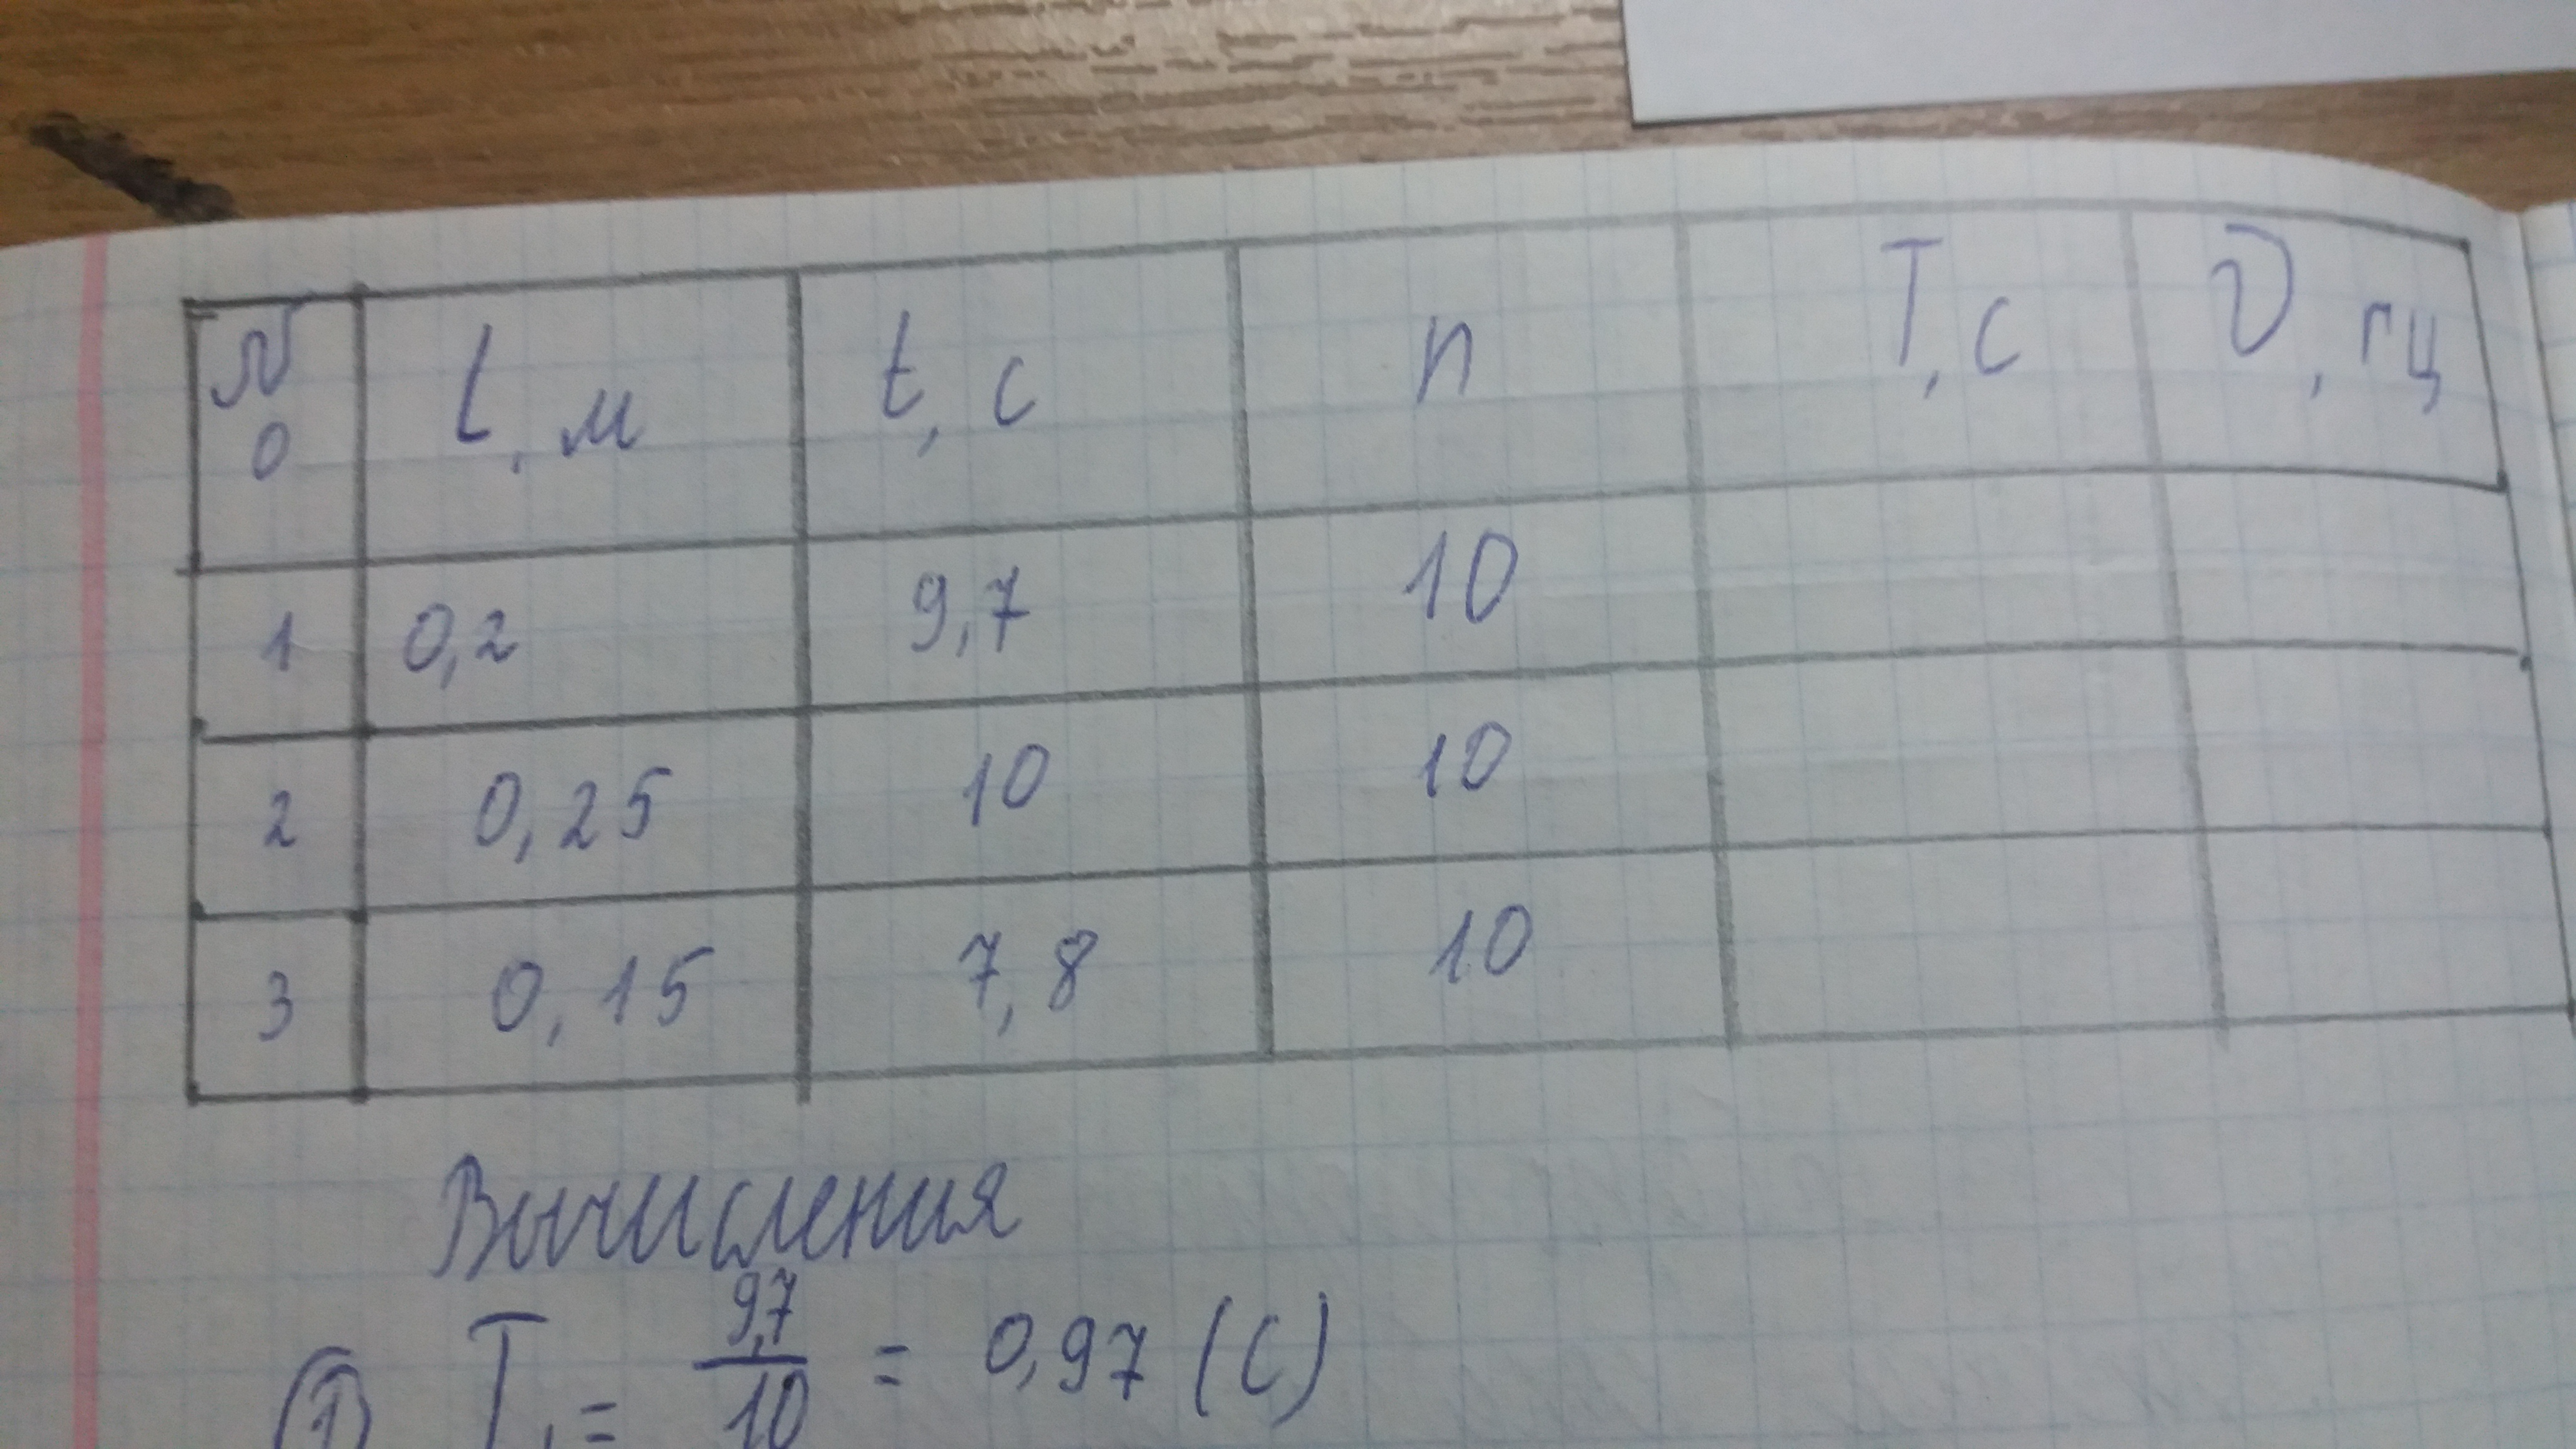 № l, м t, с n T, с ν, гц
1 0,2 9,7 10
2 0,25 10 10
3 0,15 7,8 10
Вычисления
① T₁ = 9,7/10 = 0,97 (с)